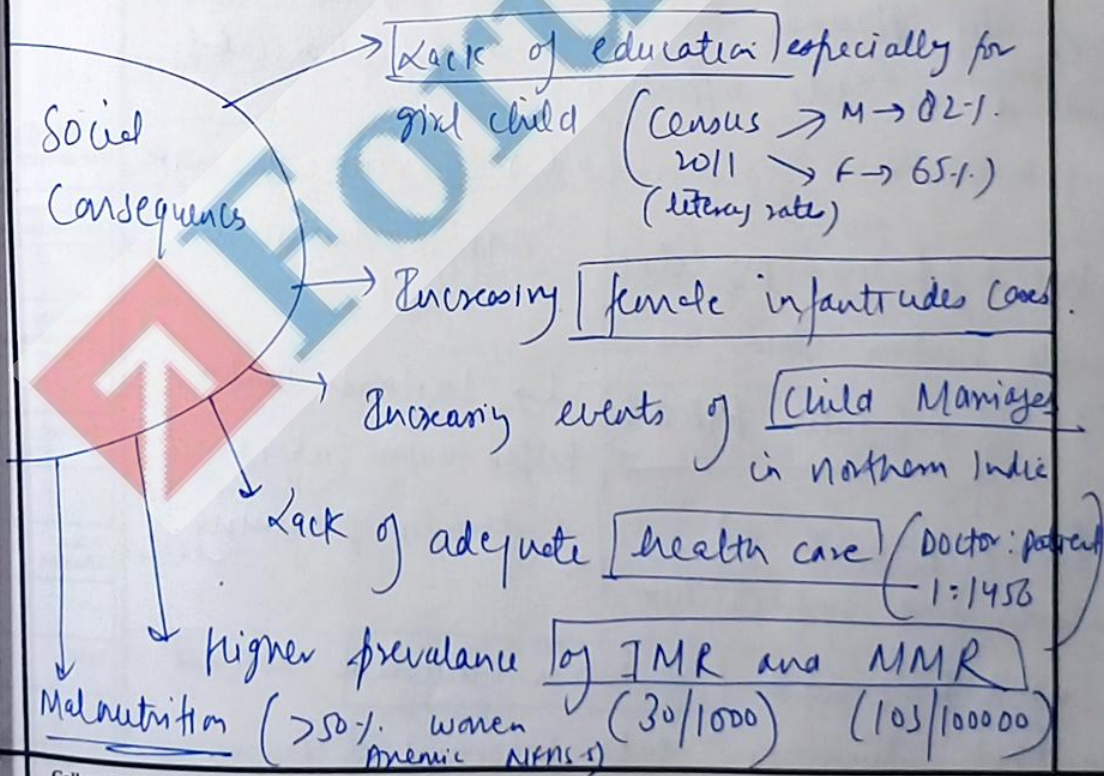 Social
Consequences
Lack of education especially for
girl child (Census → M → 82%.
2011 → F → 65%.)
(literacy rate)
Increasing female infantcides cases.
Increasing events of Child Marriages
in northern India
Lack of adequate health care (Doctor : patient
1:1456
Higher prevalance of IMR and MMR
(30/1000) (103/100000)
Malnutrition (>50%. women
Anemic NFHS-5)
For